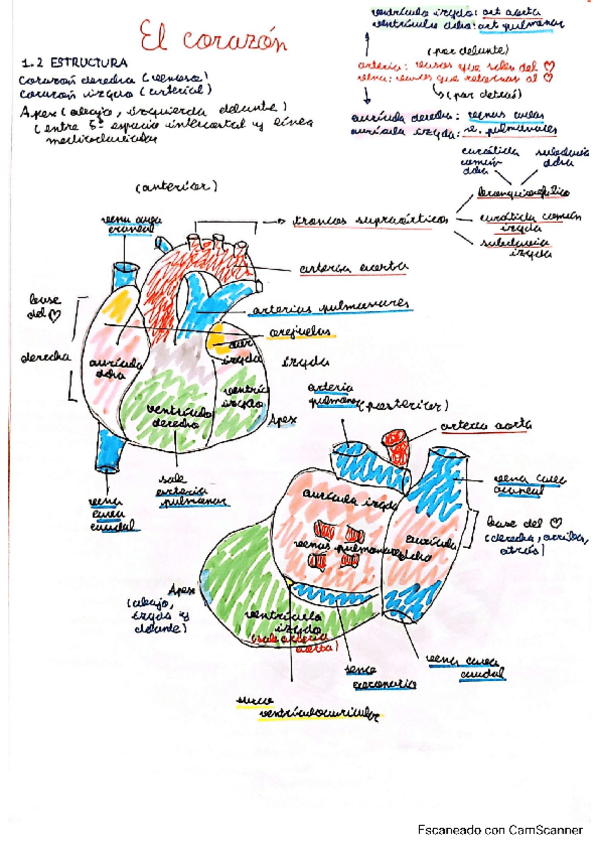 El corazón
ventrículo izqdo: art aorta
ventrículo dcho: art pulmonar
(por delante)
arteria: vasos que salen del ♡
vena: vasos que retornan al ♡
(por detrás)
aurícula derecha: venas cavas
aurícula izqda: v. pulmonares
1.2 ESTRUCTURA
corazón derecha (venosa)
corazón izqdo (arterial)
Apex (abajo, izquierda delante)
(entre 5º espacio intercostal y línea
medioclavicular
(anterior)
carótida común dcha
subclavia dcha
braquiocefálico
troncos supraaórticos
carótida común izqda
subclavia izqda
vena cava craneal
arteria aorta
arterias pulmonares
orejuelas
base del ♡
derecha
aurícula dcha
aur izqda
izqda
ventrículo derecho
ventríc izqdo
Apex
sale arteria pulmonar
vena cava caudal
arteria pulmonar
(posterior)
arteria aorta
vena cava craneal
aurícula izqda
venas pulmonares
aurícula dcha
base del ♡
(derecha, arriba, atrás)
Apex
(abajo, izqda y delante)
ventrículo izqdo
(sale arteria aorta)
seno coronario
vena cava caudal
surco
Escaneado con CamScanner